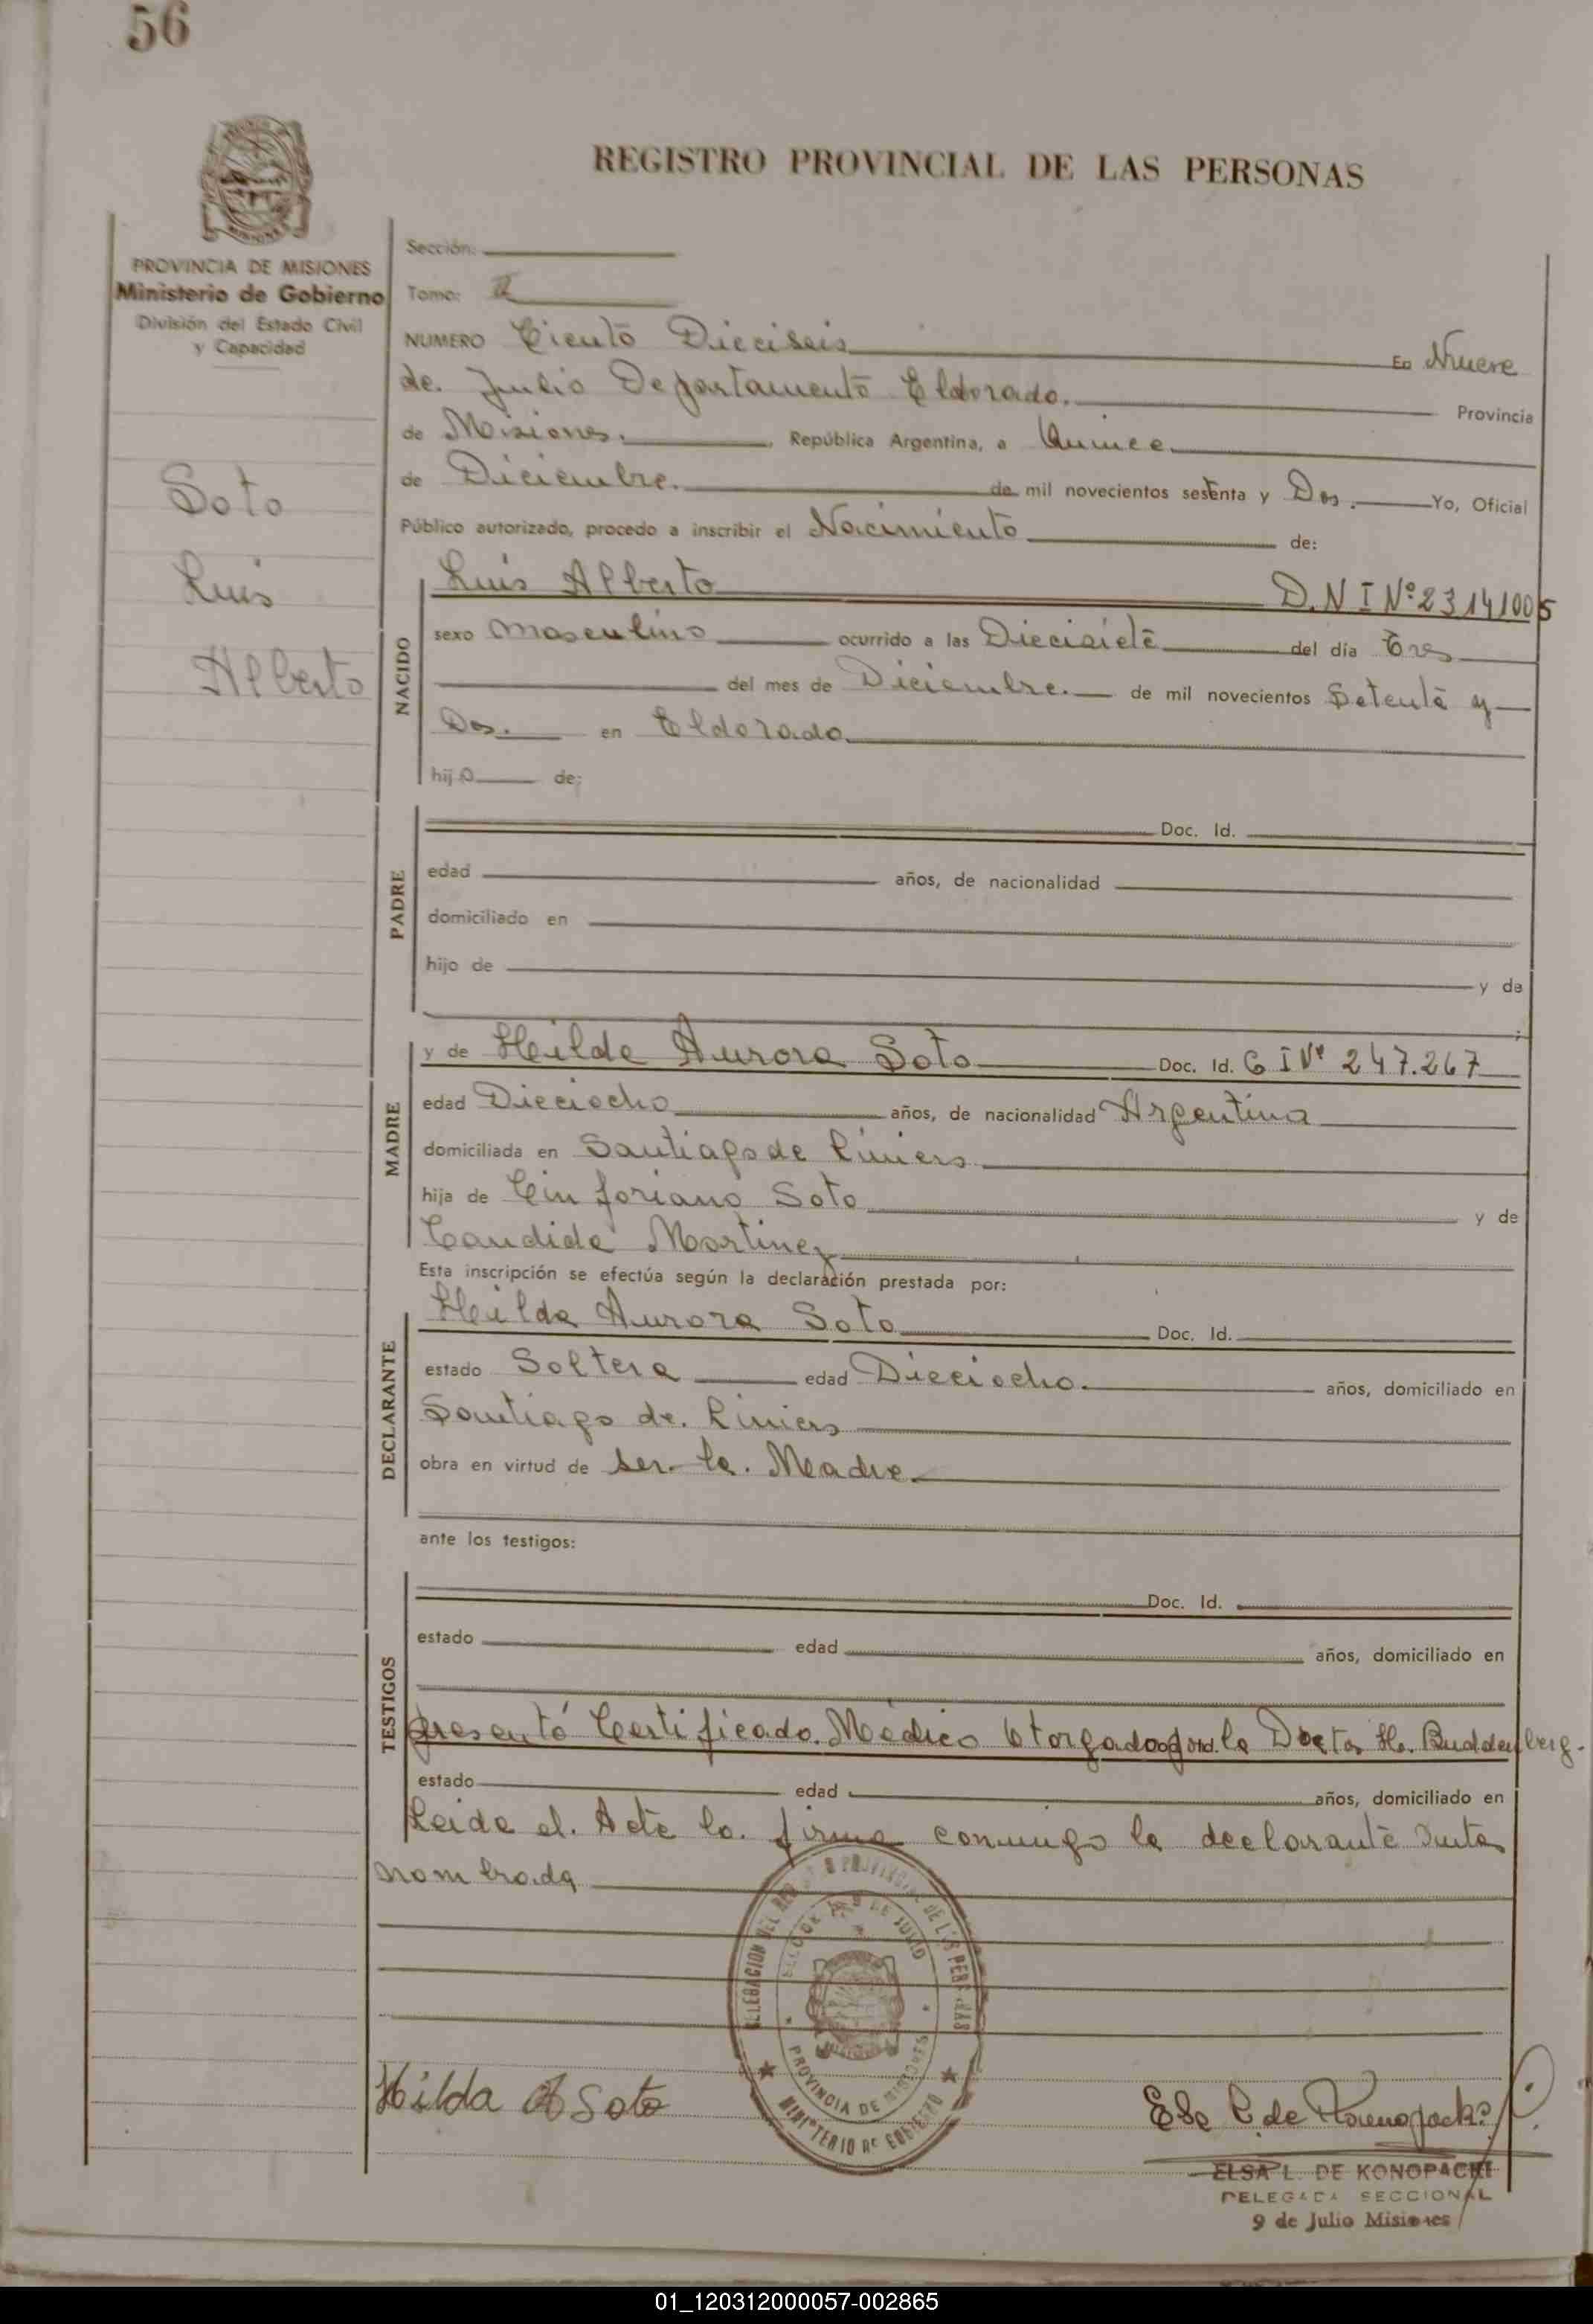 56
REGISTRO PROVINCIAL DE LAS PERSONAS
PROVINCIA DE MISIONES
Ministerio de Gobierno
División del Estado Civil
y Capacidad
Soto
Luis
Alberto
Sección:
Tomo: II
NUMERO Ciento Dieciseis En Nueve
de. Julio Departamento Eldorado. Provincia
de Misiones. República Argentina, a Quince
de Diciembre. de mil novecientos setenta y Dos. Yo, Oficial
Público autorizado, procedo a inscribir el Nacimiento de:
NACIDO
Luis Alberto D.N I Nº 23141005
sexo masculino ocurrido a las Diecisiete del día Tres
del mes de Diciembre. de mil novecientos Setenta y
Dos. en Eldorado
hijo de:
PADRE
Doc. Id.
edad años, de nacionalidad
domiciliado en
hijo de y de
;
MADRE
y de Hilda Aurora Soto Doc. Id. C I Nº 247.267
edad Dieciocho años, de nacionalidad Argentina
domiciliada en Santiago de Liniers
hija de Cinforiano Soto y de
Candida Martinez
Esta inscripción se efectúa según la declaración prestada por:
DECLARANTE
Hilda Aurora Soto Doc. Id.
estado Soltera edad Dieciocho. años, domiciliado en
Santiago de. Liniers
obra en virtud de ser. la. Madre.
ante los testigos:
TESTIGOS
Doc. Id.
estado edad años, domiciliado en
presentó Certificado. Médico Otorgado por la Doctora H. Buddenberg.
estado edad años, domiciliado en
Leida el. Acta la. firma conmigo la declarante
nombrada
DELEGACION DEL REGISTRO PROVINCIAL DE LAS PERSONAS
DE JULIO
PROVINCIA DE MISIONES
MINISTERIO DE GOBIERNO
Hilda A Soto
ELSA L. DE KONOPACKI
DELEGADA SECCIONAL
9 de Julio Misiones
01_120312000057-002865